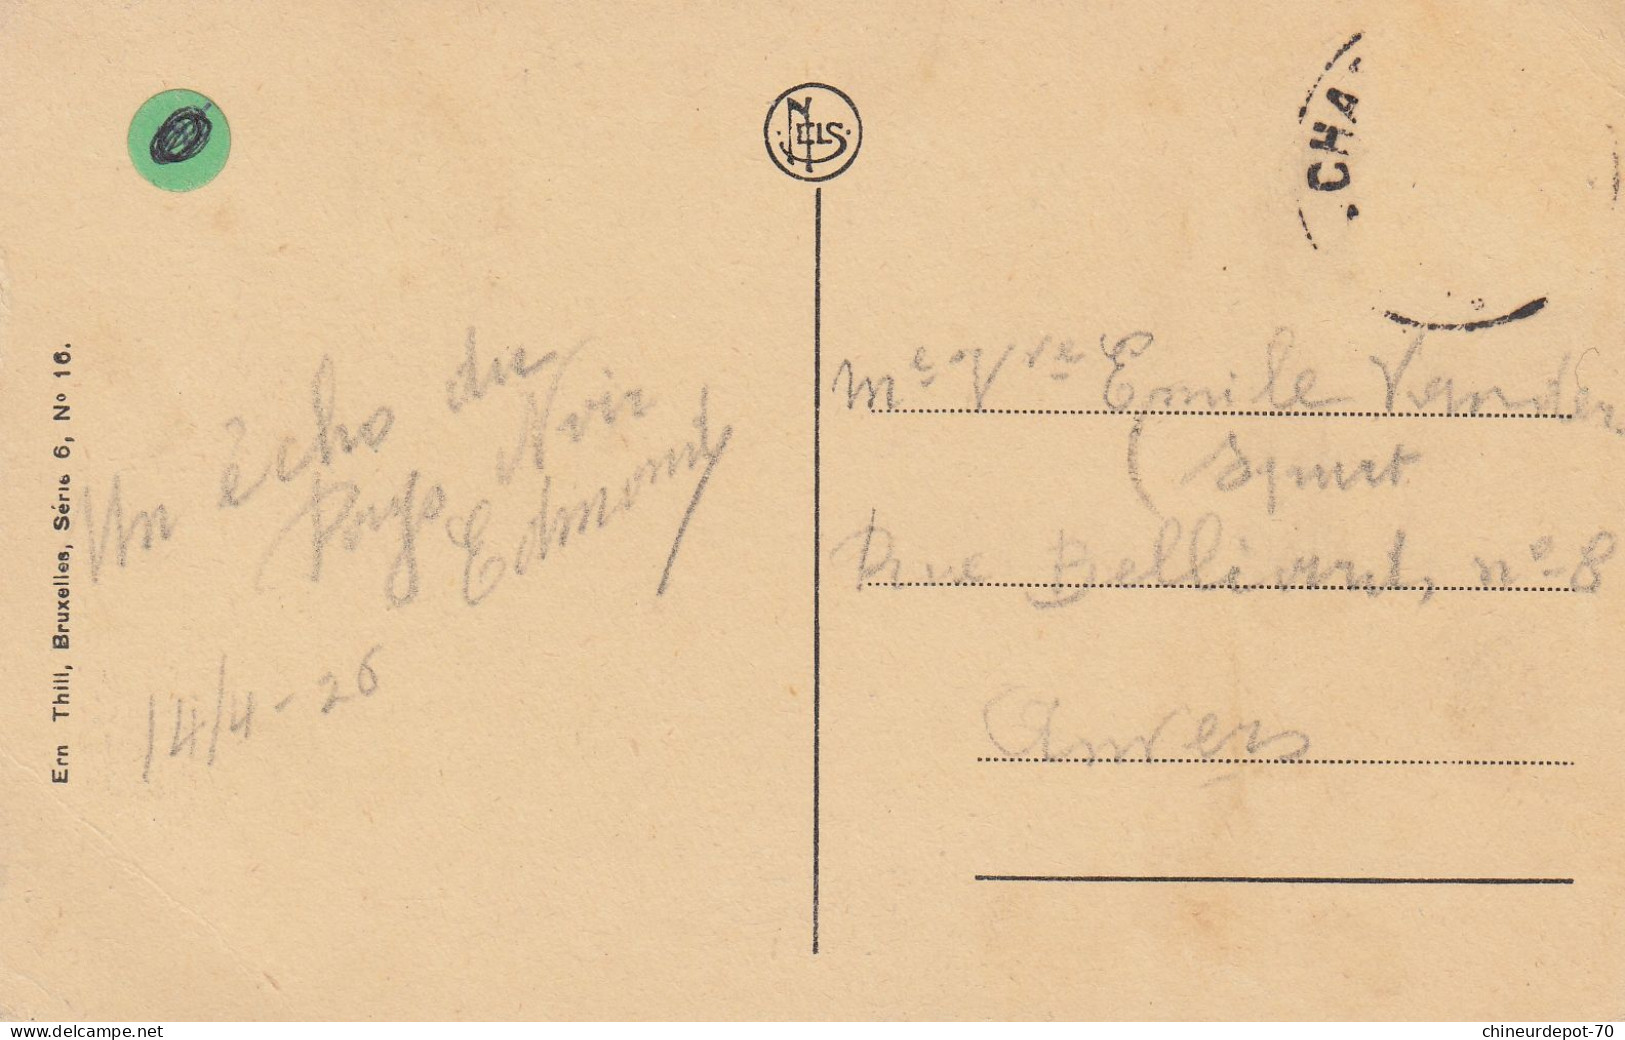 Ern Thill, Bruxelles, Série 6, No 16.
NELS
CHA
Un écho du
Pays Noir
Edmond
14/4-26
Me Vve Emile Vanden
Rue Bellivard, no 8
Anvers
www.delcampe.net
chineurdepot-70